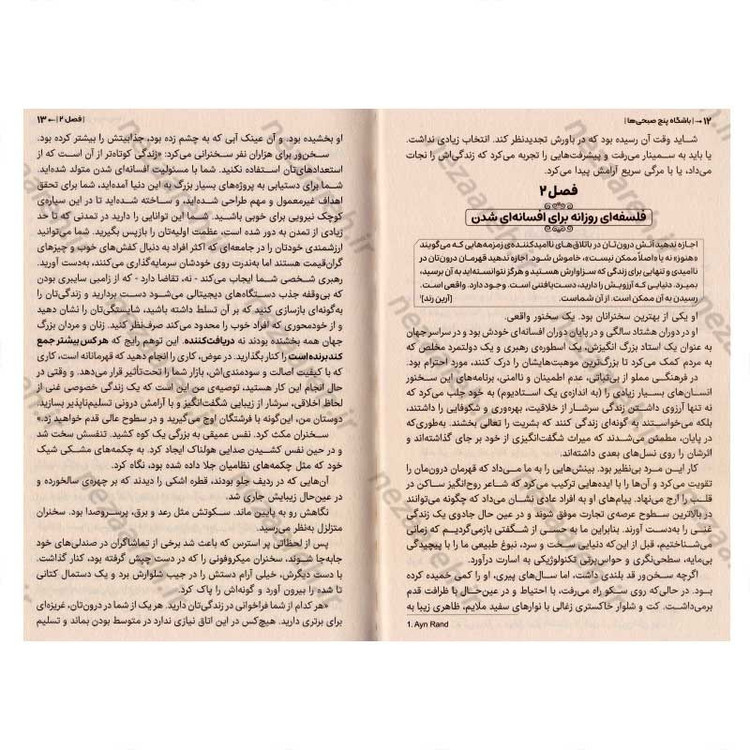 ۱۲ → | باشگاه پنج صبحی‌ها |
شاید وقت آن رسیده بود که در باورش تجدیدنظر کند. انتخاب زیادی نداشت.
یا باید به سمینار می‌رفت و پیشرفت‌هایی را تجربه می‌کرد که زندگی‌اش را نجات
می‌داد، یا با مرگی سریع آرامش پیدا می‌کرد.
فصل ۲
فلسفه‌ای روزانه برای افسانه‌ای شدن
اجازه ندهید آتش درون‌تان در باتلاق‌های ناامیدکننده‌ی زمزمه‌هایی که می‌گویند
«هنوز» نه یا «اصلاً ممکن نیست»، خاموش شود. اجازه ندهید قهرمان درون‌تان در
ناامیدی و تنهایی برای زندگی که سزاوارش هستید و هرگز نتوانسته‌اید به آن برسید،
بمیرد. دنیایی که آرزویش را دارید، دست‌یافتنی است. وجود دارد. واقعی است.
رسیدن به آن ممکن است. از آن شماست. [آین رند]¹
او یکی از بهترین سخنرانان بود. یک سخنور واقعی.
او در دوران هشتاد سالگی و در پایان دوران افسانه‌ای خودش بود و در سراسر جهان
به عنوان یک استاد بزرگ انگیزش، یک اسطوره‌ی رهبری و یک دولتمرد مخلص که
به مردم کمک می‌کرد تا بزرگ‌ترین موهبت‌هایشان را درک کنند، مورد احترام بود.
در فرهنگی مملو از بی‌ثباتی، عدم اطمینان و ناامنی، برنامه‌های این سخنور
انسان‌های بسیار زیادی را (به اندازه‌ی یک استادیوم) به خود جلب می‌کرد که
نه تنها آرزوی داشتن زندگی سرشار از خلاقیت، بهره‌وری و شکوفایی را داشتند،
بلکه می‌خواستند به گونه‌ای زندگی کنند که بشریت را تعالی بخشند. به‌طوری‌که
در پایان، مطمئن می‌شدند که میراث شگفت‌انگیزی از خود بر جای گذاشته‌اند و
اثرشان را روی نسل‌های بعدی داشته‌اند.
کار این مرد بی‌نظیر بود. بینش‌هایی را به ما می‌داد که قهرمان درون‌مان را
تقویت می‌کرد و آن‌ها را با ایده‌هایی ترکیب می‌کرد که شاعر روح‌انگیز ساکن در
قلب را ارج می‌نهاد. پیام‌های او به افراد عادی نشان می‌داد که چگونه می‌توانند
در بالاترین سطوح عرصه‌ی تجارت موفق شوند و در عین حال جادوی یک زندگی
غنی را به‌دست آورند. بنابراین ما به حسی از شگفتی بازمی‌گردیم که زمانی
می‌شناختیم، قبل از این‌که دنیایی سخت و سرد، نبوغ طبیعی ما را با پیچیدگی
بی‌مایه، سطحی‌نگری و حواس‌پرتی تکنولوژیکی به اسارت درآورد.
اگرچه سخن‌ور قد بلندی داشت، اما سال‌های پیری، او را کمی خمیده کرده
بود. در حالی‌که روی سکو راه می‌رفت، با احتیاط و در عین‌حال با ظرافت قدم
برمی‌داشت. کت و شلوار خاکستری زغالی با نوارهای سفید ملایم، ظاهری زیبا به
1. Ayn Rand
| فصل ۲ | ← ۱۳
او بخشیده بود. و آن عینک آبی که به چشم زده بود، جذابیتش را بیشتر کرده بود.
سخن‌ور برای هزاران نفر سخنرانی می‌کرد: «زندگی کوتاه‌تر از آن است که از
استعدادهای‌تان استفاده نکنید. شما با مسئولیت افسانه‌ای شدن متولد شده‌اید.
شما برای دستیابی به پروژه‌های بسیار بزرگ به این دنیا آمده‌اید، شما برای تحقق
اهداف غیرمعمول و مهم طراحی شده‌اید، و ساخته شده‌اید تا در این سیاره‌ی
کوچک نیرویی برای خوبی باشید. شما این توانایی را دارید در تمدنی که تا حد
زیادی از تمدن به دور شده است، عظمت اولیه‌تان را بازپس بگیرید. شما می‌توانید
ارزشمندی خودتان را در جامعه‌ای که اکثر افراد به دنبال کفش‌های خوب و چیزهای
گران‌قیمت هستند اما به‌ندرت روی خودشان سرمایه‌گذاری می‌کنند، بازگردانید.
رهبری شخصی شما ایجاب می‌کند - نه، تقاضا دارد - که از زامبی سایبری بودن
که بی‌وقفه جذب دستگاه‌های دیجیتالی می‌شود دست بردارید و زندگی‌تان را
به‌گونه‌ای بازسازی کنید که بر آن تسلط داشته باشید، شایستگی‌تان را نشان دهید
و از خودمحوری که افراد خوب را محدود می‌کند صرف‌نظر کنید. زنان و مردان بزرگ
جهان همه بخشنده بودند نه دریافت‌کننده. این توهم رایج که هر کس بیشتر جمع
کند برنده است را کنار بگذارید. در عوض، کاری را انجام دهید که قهرمانانه است، کاری
که با کیفیت اصالت و سودمندی‌اش، بازار شما را تحت‌تأثیر قرار می‌دهد. و وقتی در
حال انجام این کار هستید، توصیه‌ی من این است که یک زندگی خصوصی غنی از
لحاظ اخلاقی، سرشار از زیبایی شگفت‌انگیز و با آرامش درونی تسلیم‌ناپذیر بسازید.
دوستان من، این‌گونه با فرشتگان اوج می‌گیرید و در سطوح عالی قدم خواهید زد.»
سخنران مکث کرد. نفس عمیقی به بزرگی یک کوه کشید. تنفسش سخت شد
و در حین نفس کشیدن صدایی هولناک ایجاد کرد. به چکمه‌های مشکی شیک
خود که مثل چکمه‌های نظامیان جلا داده شده بود، نگاه کرد.
آن‌هایی که در ردیف جلو بودند، قطره اشکی را دیدند که بر چهره‌ی سالخورده و
در عین‌حال زیبایش جاری شد.
نگاهش رو به پایین ماند. سکوتش مثل رعد و برق، پرسروصدا بود. سخنران
متزلزل به‌نظر می‌رسید.
پس از لحظاتی پر استرس که باعث شد برخی از تماشاگران در صندلی‌های خود
جابه‌جا شوند، سخنران میکروفونی را که در دست چپش گرفته بود، کنار گذاشت.
با دست دیگرش، خیلی آرام دستش را در جیب شلوارش برد و یک دستمال کتانی
تا شده را بیرون آورد و گونه‌اش را پاک کرد.
«هر کدام از شما فراخوانی در زندگی‌تان دارید. هر یک از شما در درون‌تان، غریزه‌ای
برای برتری دارید. هیچ‌کس در این اتاق نیازی ندارد در متوسط بودن بماند و تسلیم